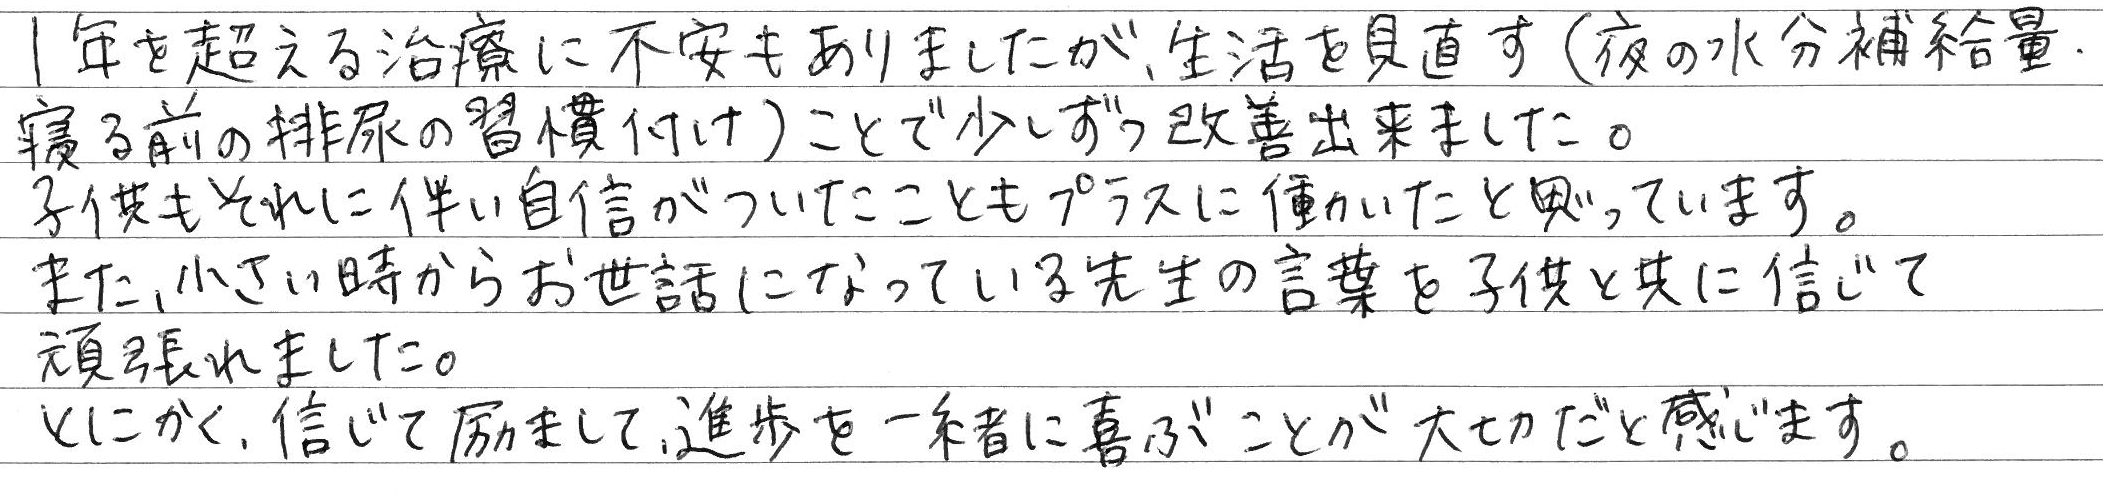 1年を超える治療に不安もありましたが、生活を見直す(夜の水分補給量・
寝る前の排尿の習慣付け)ことで少しずつ改善出来ました。
子供もそれに伴い自信がついたこともプラスに働いたと思っています。
また、小さい時からお世話になっている先生の言葉を子供と共に信じて
頑張れました。
とにかく、信じて励まして、進歩を一緒に喜ぶことが大切だと感じます。